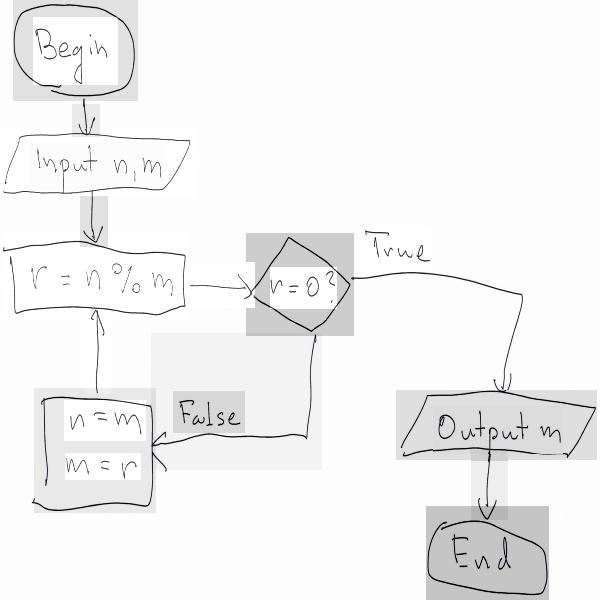 Begin
Input n, m
r = n % m
r = 0?
True
False
n = m
m = r
Output m
End